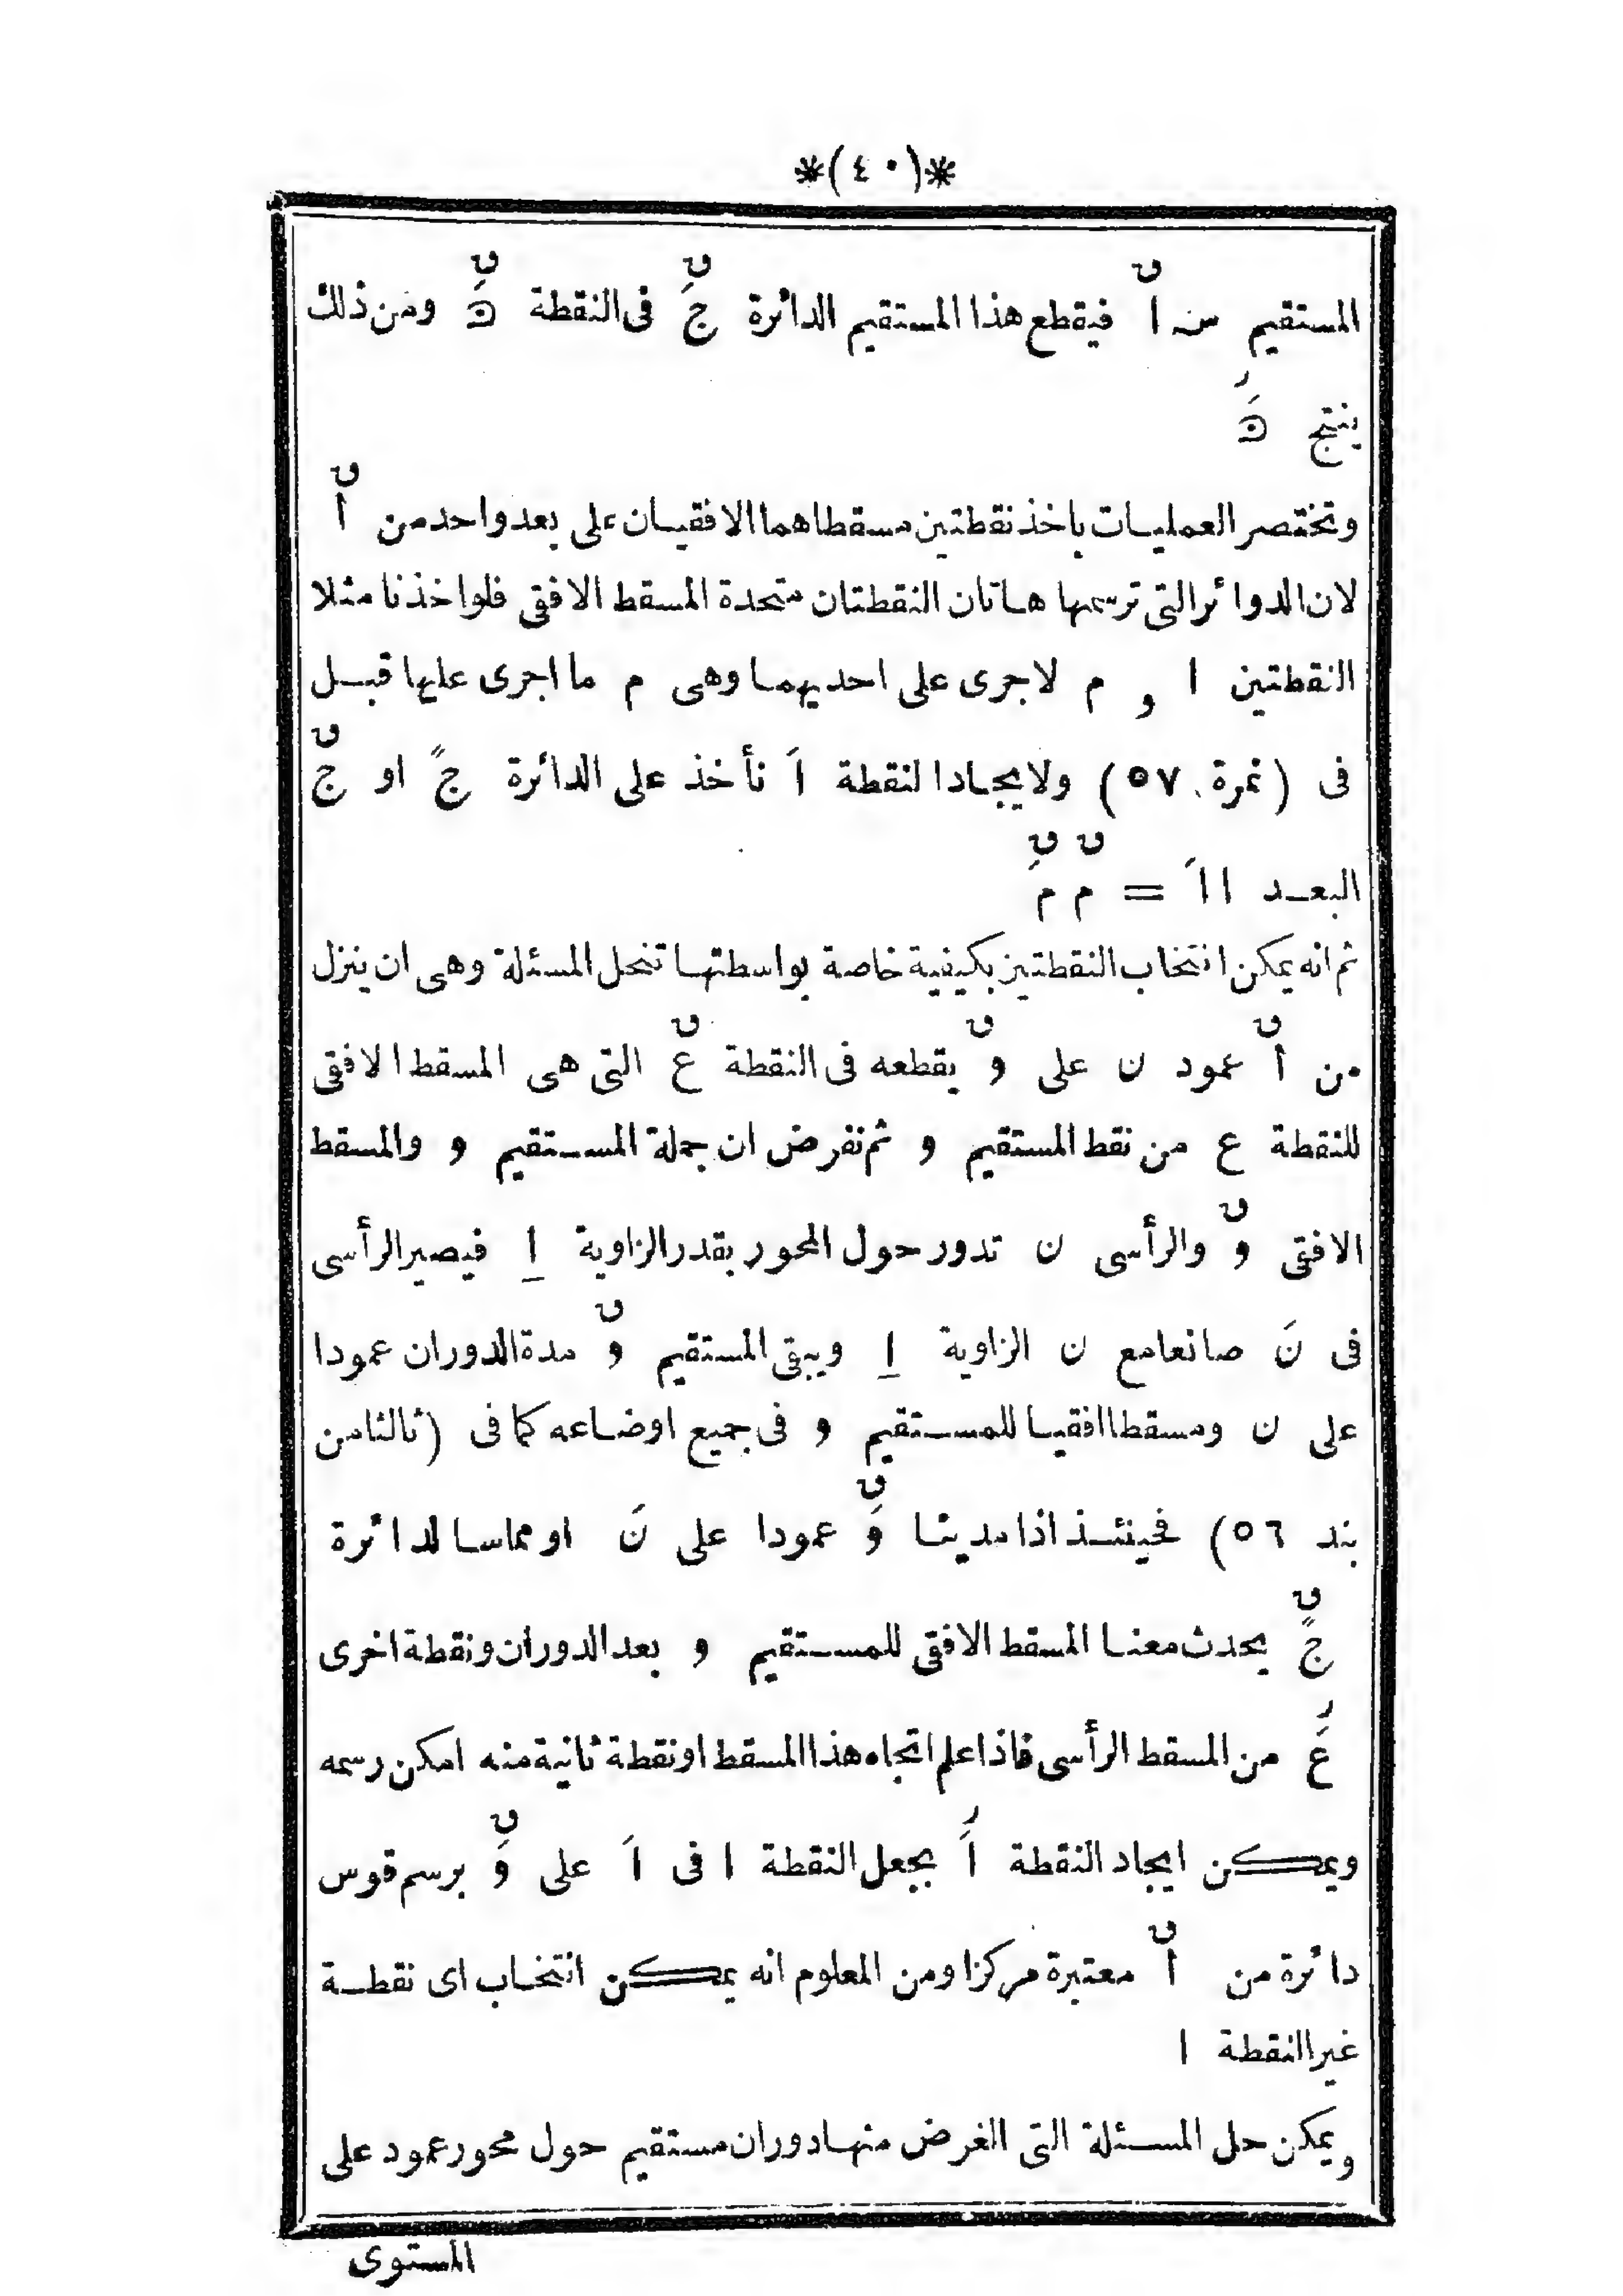 *(٤٠)*
المستقيم سه اْ فيقطع هذا المستقيم الدائرة ج في النقطة د ومن ذلك
ينتج د
وتختصر العمليات باخذ نقطتين مسقطاهما الافقيان على بعد واحد من ا
لان الدوائر التى ترسمها هاتان النقطتان متحدة المسقط الافقى فلو اخذنا مثلا
النقطتين ا و م لاجرى على احديهما وهى م ما اجرى عليها قبل
فى (نمرة ٥٧) ولايجاد النقطة اَ نأخذ على الدائرة جً او ج
البعد ااَ = م مَ
ثم انه يمكن انتخاب النقطتين بكيفية خاصة بواسطتها تنحل المسئلة وهى ان ينزل
من ا عمود ن على و يقطعه فى النقطة ع التى هى المسقط الافقى
للنقطة ع من نقط المستقيم و ثم نفرض ان جملة المستقيم و والمسقط
الافقى و والرأسى ن تدور حول المحور بقدر الزاوية ا فيصير الرأسى
فى نَ صانعا مع ن الزاوية ا ويبقى المستقيم و مدة الدوران عمودا
على ن ومسقطا افقيا للمستقيم و فى جميع اوضاعه كما فى (ثالثا من
بند ٥٦) فحينئذ اذا مدينا وَ عمودا على نَ او مماسا لدائرة
جً يحدث معنا المسقط الافقى للمستقيم و بعد الدوران ونقطة اخرى
عَ من المسقط الرأسى فاذا علم اتجاه هذا المسقط او نقطة ثانية منه امكن رسمه
ويمكن ايجاد النقطة اَ بجعل النقطة ا فى اَ على وَ برسم قوس
دائرة من ا معتبرة مركزا ومن المعلوم انه يمكن انتخاب اى نقطة
غير النقطة ا
ويمكن حل المسئلة التى الغرض منها دوران مستقيم حول محور عمود على
المستوى